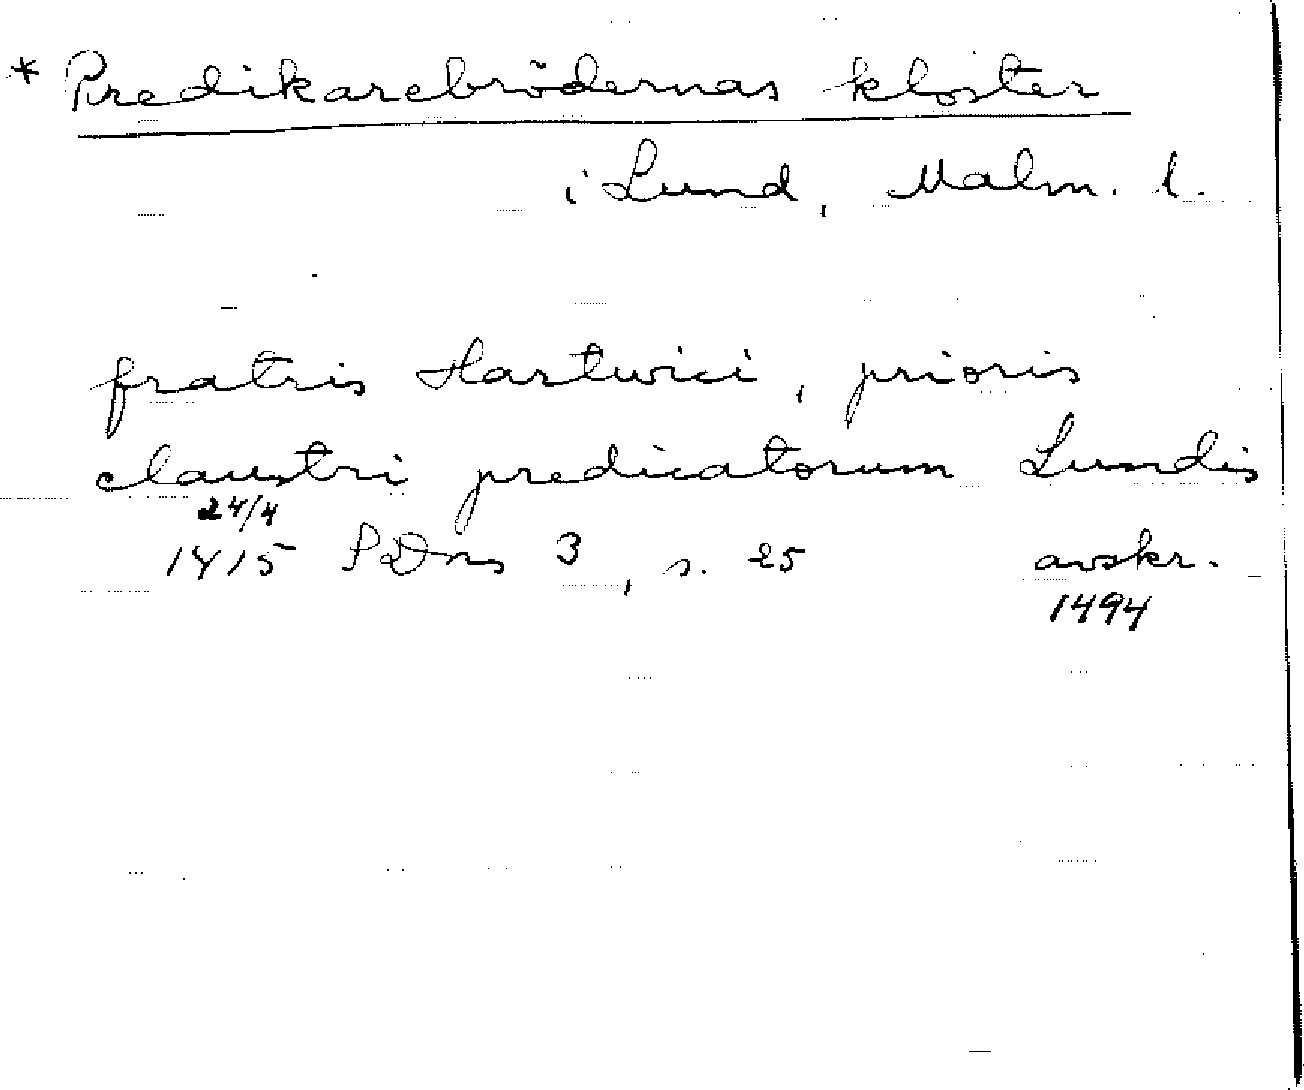 * Predikarebrödernas kloster
i Lund, Malm. l.
fratris Hartwici, prioris
claustri predicatorum Lundis
24/4
1415 SDns 3, s. 25 avskr.
1494